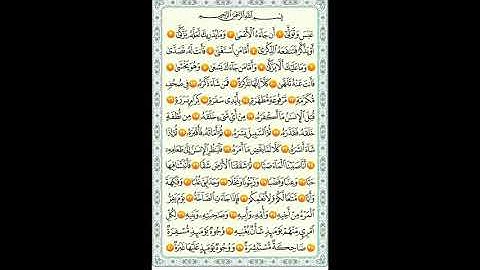 بِسْمِ اللَّهِ الرَّحْمَٰنِ الرَّحِيمِ
عَبَسَ وَتَوَلَّىٰ ۝ أَن جَاءَهُ الْأَعْمَىٰ ۝ وَمَا يُدْرِيكَ لَعَلَّهُ يَزَّكَّىٰ ۝
أَوْ يَذَّكَّرُ فَتَنفَعَهُ الذِّكْرَىٰ ۝ أَمَّا مَنِ اسْتَغْنَىٰ ۝ فَأَنتَ لَهُ تَصَدَّىٰ
۝ وَمَا عَلَيْكَ أَلَّا يَزَّكَّىٰ ۝ وَأَمَّا مَن جَاءَكَ يَسْعَىٰ ۝ وَهُوَ يَخْشَىٰ ۝
فَأَنتَ عَنْهُ تَلَهَّىٰ ۝ كَلَّا إِنَّهَا تَذْكِرَةٌ ۝ فَمَن شَاءَ ذَكَرَهُ ۝ فِي صُحُفٍ
مُّكَرَّمَةٍ ۝ مَّرْفُوعَةٍ مُّطَهَّرَةٍ ۝ بِأَيْدِي سَفَرَةٍ ۝ كِرَامٍ بَرَرَةٍ ۝
قُتِلَ الْإِنسَانُ مَا أَكْفَرَهُ ۝ مِنْ أَيِّ شَيْءٍ خَلَقَهُ ۝ مِن نُّطْفَةٍ
خَلَقَهُ فَقَدَّرَهُ ۝ ثُمَّ السَّبِيلَ يَسَّرَهُ ۝ ثُمَّ أَمَاتَهُ فَأَقْبَرَهُ ۝ ثُمَّ إِذَا
شَاءَ أَنشَرَهُ ۝ كَلَّا لَمَّا يَقْضِ مَا أَمَرَهُ ۝ فَلْيَنظُرِ الْإِنسَانُ إِلَىٰ طَعَامِهِ
۝ أَنَّا صَبَبْنَا الْمَاءَ صَبًّا ۝ ثُمَّ شَقَقْنَا الْأَرْضَ شَقًّا ۝ فَأَنبَتْنَا فِيهَا
حَبًّا ۝ وَعِنَبًا وَقَضْبًا ۝ وَزَيْتُونًا وَنَخْلًا ۝ وَحَدَائِقَ غُلْبًا ۝ وَفَاكِهَةً
وَأَبًّا ۝ مَّتَاعًا لَّكُمْ وَلِأَنْعَامِكُمْ ۝ فَإِذَا جَاءَتِ الصَّاخَّةُ ۝ يَوْمَ يَفِرُّ
الْمَرْءُ مِنْ أَخِيهِ ۝ وَأُمِّهِ وَأَبِيهِ ۝ وَصَاحِبَتِهِ وَبَنِيهِ ۝ لِكُلِّ
امْرِئٍ مِّنْهُمْ يَوْمَئِذٍ شَأْنٌ يُغْنِيهِ ۝ وُجُوهٌ يَوْمَئِذٍ مُّسْفِرَةٌ
۝ ضَاحِكَةٌ مُّسْتَبْشِرَةٌ ۝ وَوُجُوهٌ يَوْمَئِذٍ عَلَيْهَا غَبَرَةٌ ۝